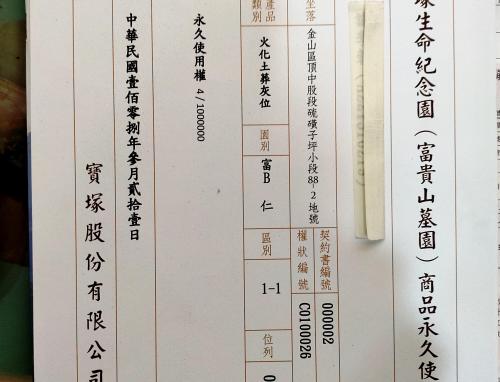 塚生命紀念園（富貴山墓園）商品永久使
坐落 金山區頂中股段硫磺子坪小段88-2地號
契約書編號 000002
權狀編號 C0100026
產品類別 火化土葬灰位 園別 富B 仁 區別 1-1 位列
永久使用權 4/1000000
中華民國壹佰零捌年參月貳拾壹日
寶塚股份有限公司